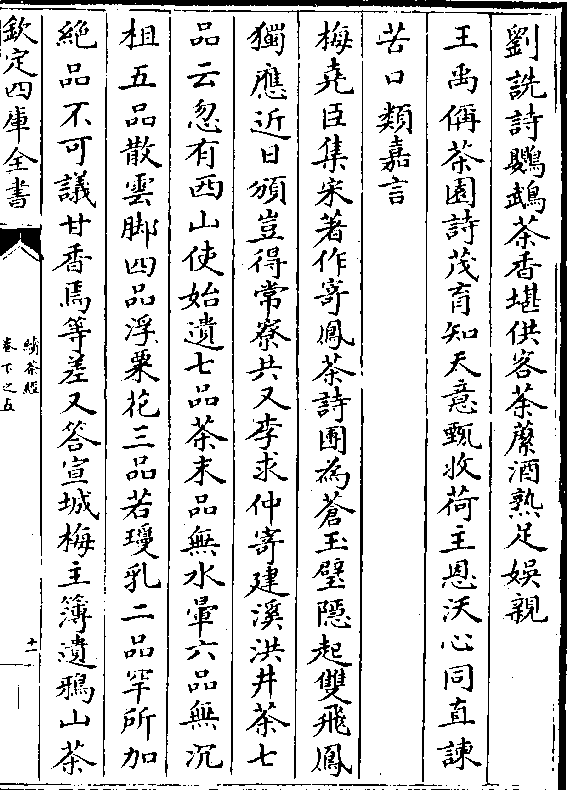 劉詵詩鸚鵡茶香堪供客荼䕷酒熟足娛親
王禹偁茶園詩茂育知天意甄收荷主恩沃心同直諫
苦口類嘉言
梅堯臣集宋著作寄鳳茶詩團為蒼玉璧隠起雙飛鳳
獨應近日頒豈得常寮共又李求仲寄建溪洪井茶七
品云忽有西山使始遺七品茶末品無水暈六品無沉
柤五品散雲脚四品浮粟花三品若瓊乳二品罕所加
絶品不可議甘香焉等差又答宣城梅主簿遺鴉山茶
欽定四庫全書
續茶經
卷下之五
十一